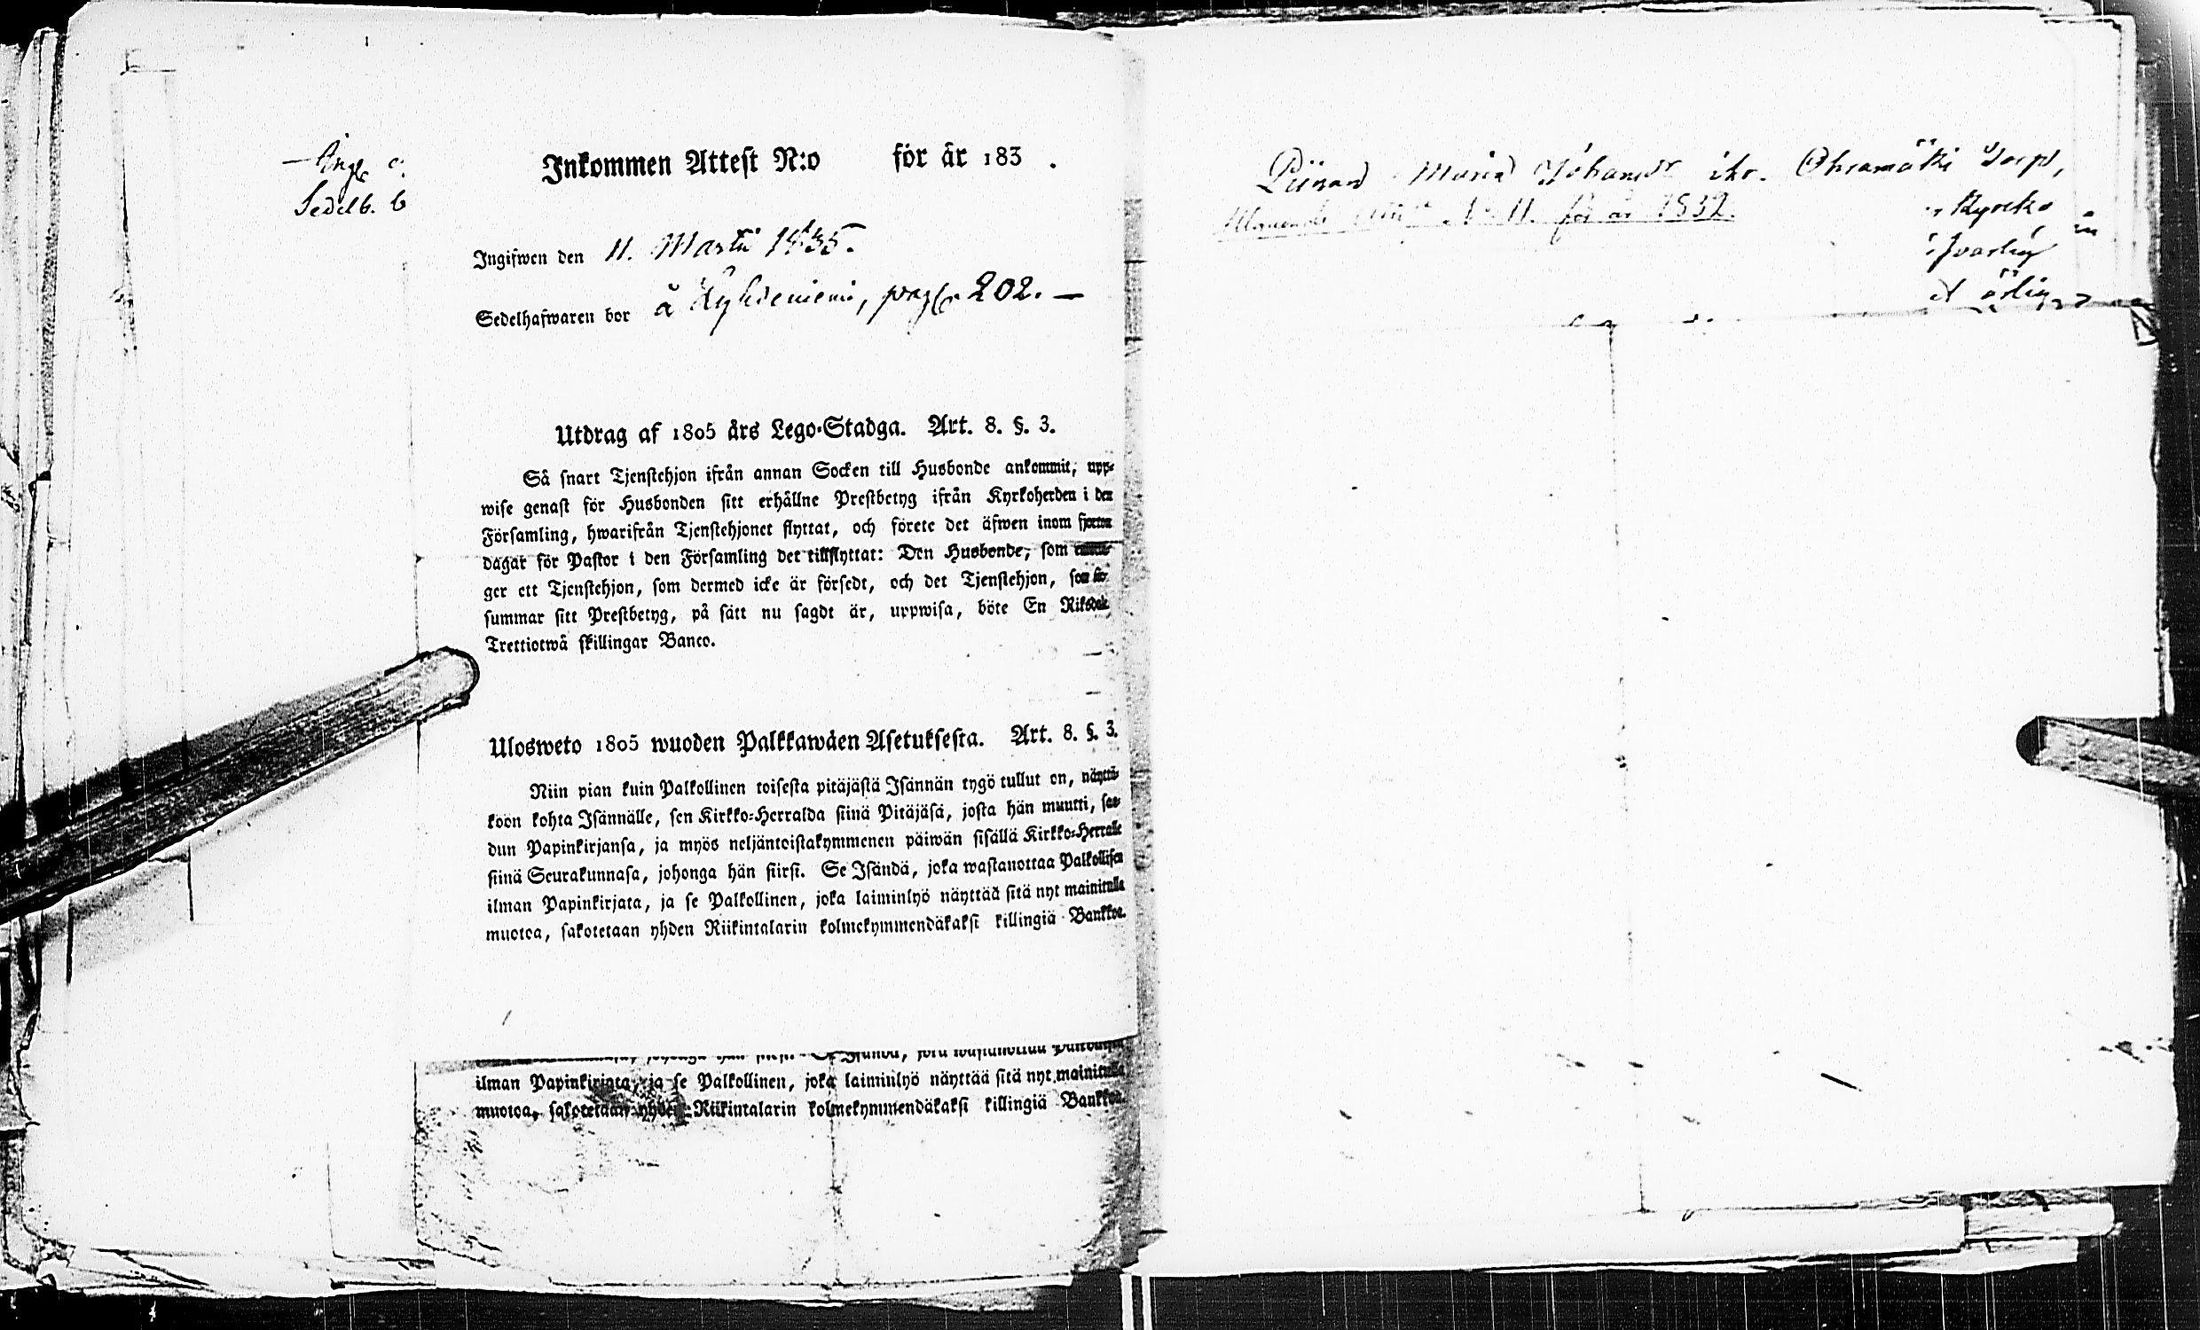 Inkommen Attest N:o för år 183 .
Ingifwen den 11. Martii 1835.
Sedelhafwaren bor å Kyhdeniemi, pag. 202. —
Utdrag af 1805 års Lego-Stadga. Art. 8. §. 3.
Så snart Tjenstehjon ifrån annan Socken till Husbonde ankommit, upp-
wise genast för Husbonden sitt erhållne Prestbetyg ifrån Kyrkoherden i den
Församling, hwarifrån Tjenstehjonet flyttat, och förete det äfwen inom fjorton
dagar för Pastor i den Församling det tillflyttat: Den Husbonde, som
ger ett Tjenstehjon, som dermed icke är försedt, och det Tjenstehjon, som för-
summar sitt Prestbetyg, på sätt nu sagdt är, uppwisa, böte En Riksdal.
Trettiotwå skillingar Banco.
Ulosweto 1805 wuoden Palkkawäen Asetuksesta. Art. 8. §. 3.
Niin pian kuin Palkollinen toisesta pitäjästä Isännän tygö tullut on, näyttä-
köön kohta Isännälle, sen Kirkko-Herralda siinä Pitäjäsä, josta hän muutti, saa-
dun Papinkirjansa, ja myös neljäntoistakymmenen päiwän sisällä Kirkko-Herralle
siinä Seurakunnasa, johonga hän siirsi. Se Isändä, joka wastanottaa Palkollisen
ilman Papinkirjata, ja se Palkollinen, joka laiminlyö näyttää sitä nyt mainitulla
muotoa, sakotetaan yhden Riikintalarin kolmekymmendäkaksi killingiä Bankkoa.
ilman Papinkirjata, ja se Palkollinen, joka laiminlyö näyttää sitä nyt mainitulla
muotoa, sakotetaan yhden Riikintalarin kolmekymmendäkaksi killingiä Bankkoa.
Sedelb. b
Piinan Maria Johansdr Ohramäki
N:o 11. för år 1832.